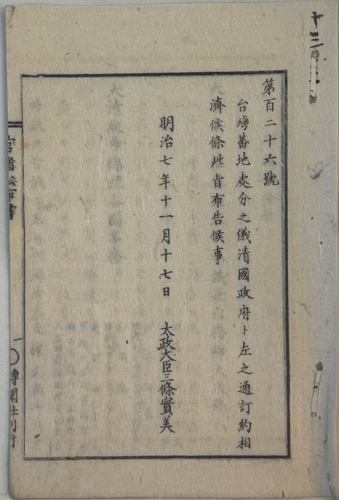 十三
第百二十六號
台灣蕃地處分之儀清國政府ト左之通訂約相
濟候條此旨布告候事
明治七年十一月十七日　太政大臣三條實美
一〇博聞社刊行